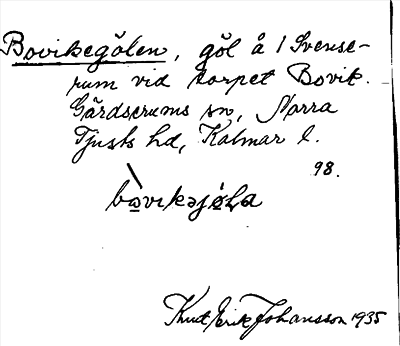 Bovikegölen, göl å 1 Svense-
rum vid torpet Bovik.
Gärdserums sn, Norra
Tjusts hd, Kalmar l.
98.
bo̖vikəjø̖La
Knut Erik Johansson 1935